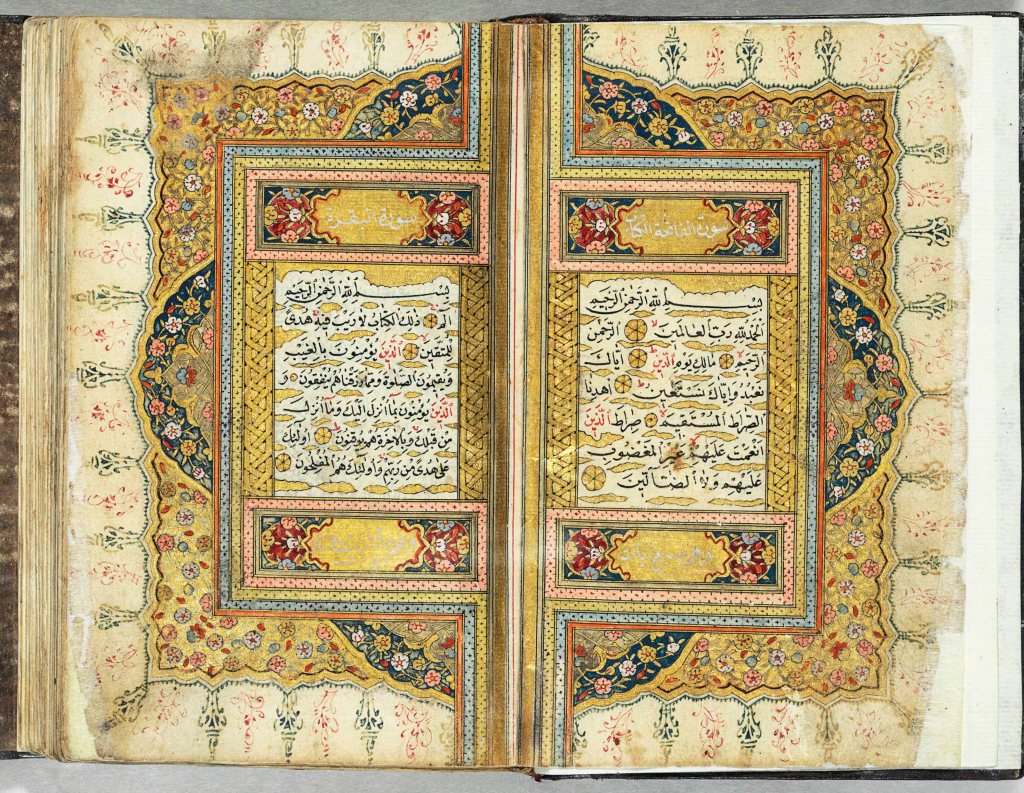 سورة الفاتحة
بسم الله الرحمن الرحيم
الحمد لله رب العالمين الرحمن
الرحيم مالك يوم الدين اياك
نعبد واياك نستعين اهدنا
الصراط المستقيم صراط الذين
انعمت عليهم غير المغضوب
عليهم ولا الضالين
سورة البقرة
بسم الله الرحمن الرحيم
الم ذلك الكتاب لا ريب فيه هدى
للمتقين الذين يؤمنون بالغيب
ويقيمون الصلوة ومما رزقناهم ينفقون و
الذين يؤمنون بما انزل اليك وما انزل
من قبلك وبالاخرة هم يوقنون اولئك
على هدى من ربهم واولئك هم المفلحون